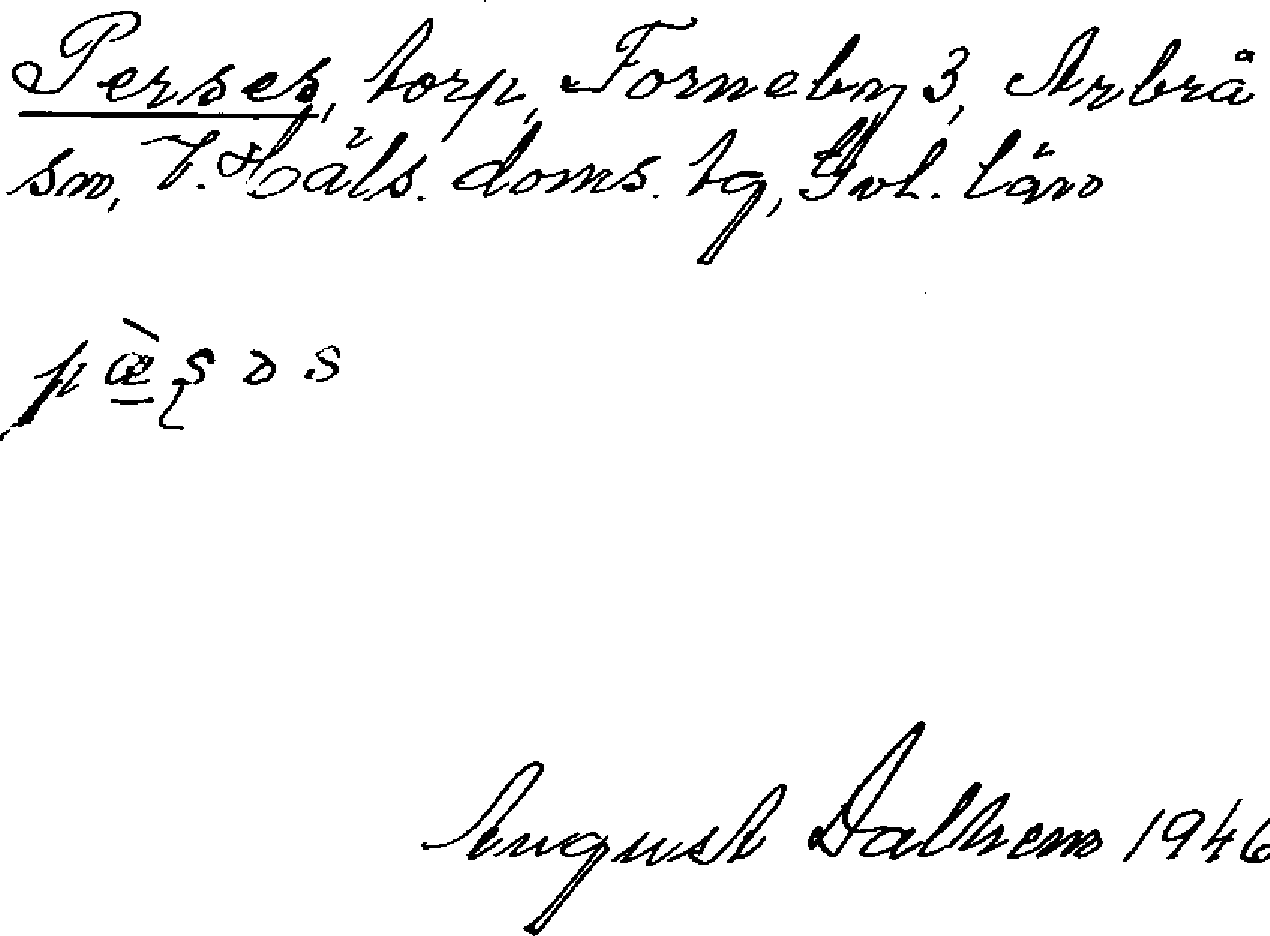 Perses, torp, Forneby 3, Arbrå
sn, V. Häls. doms. tg, Gvl. län
pæ̠̀ʂɔs
August Dalhem 1946